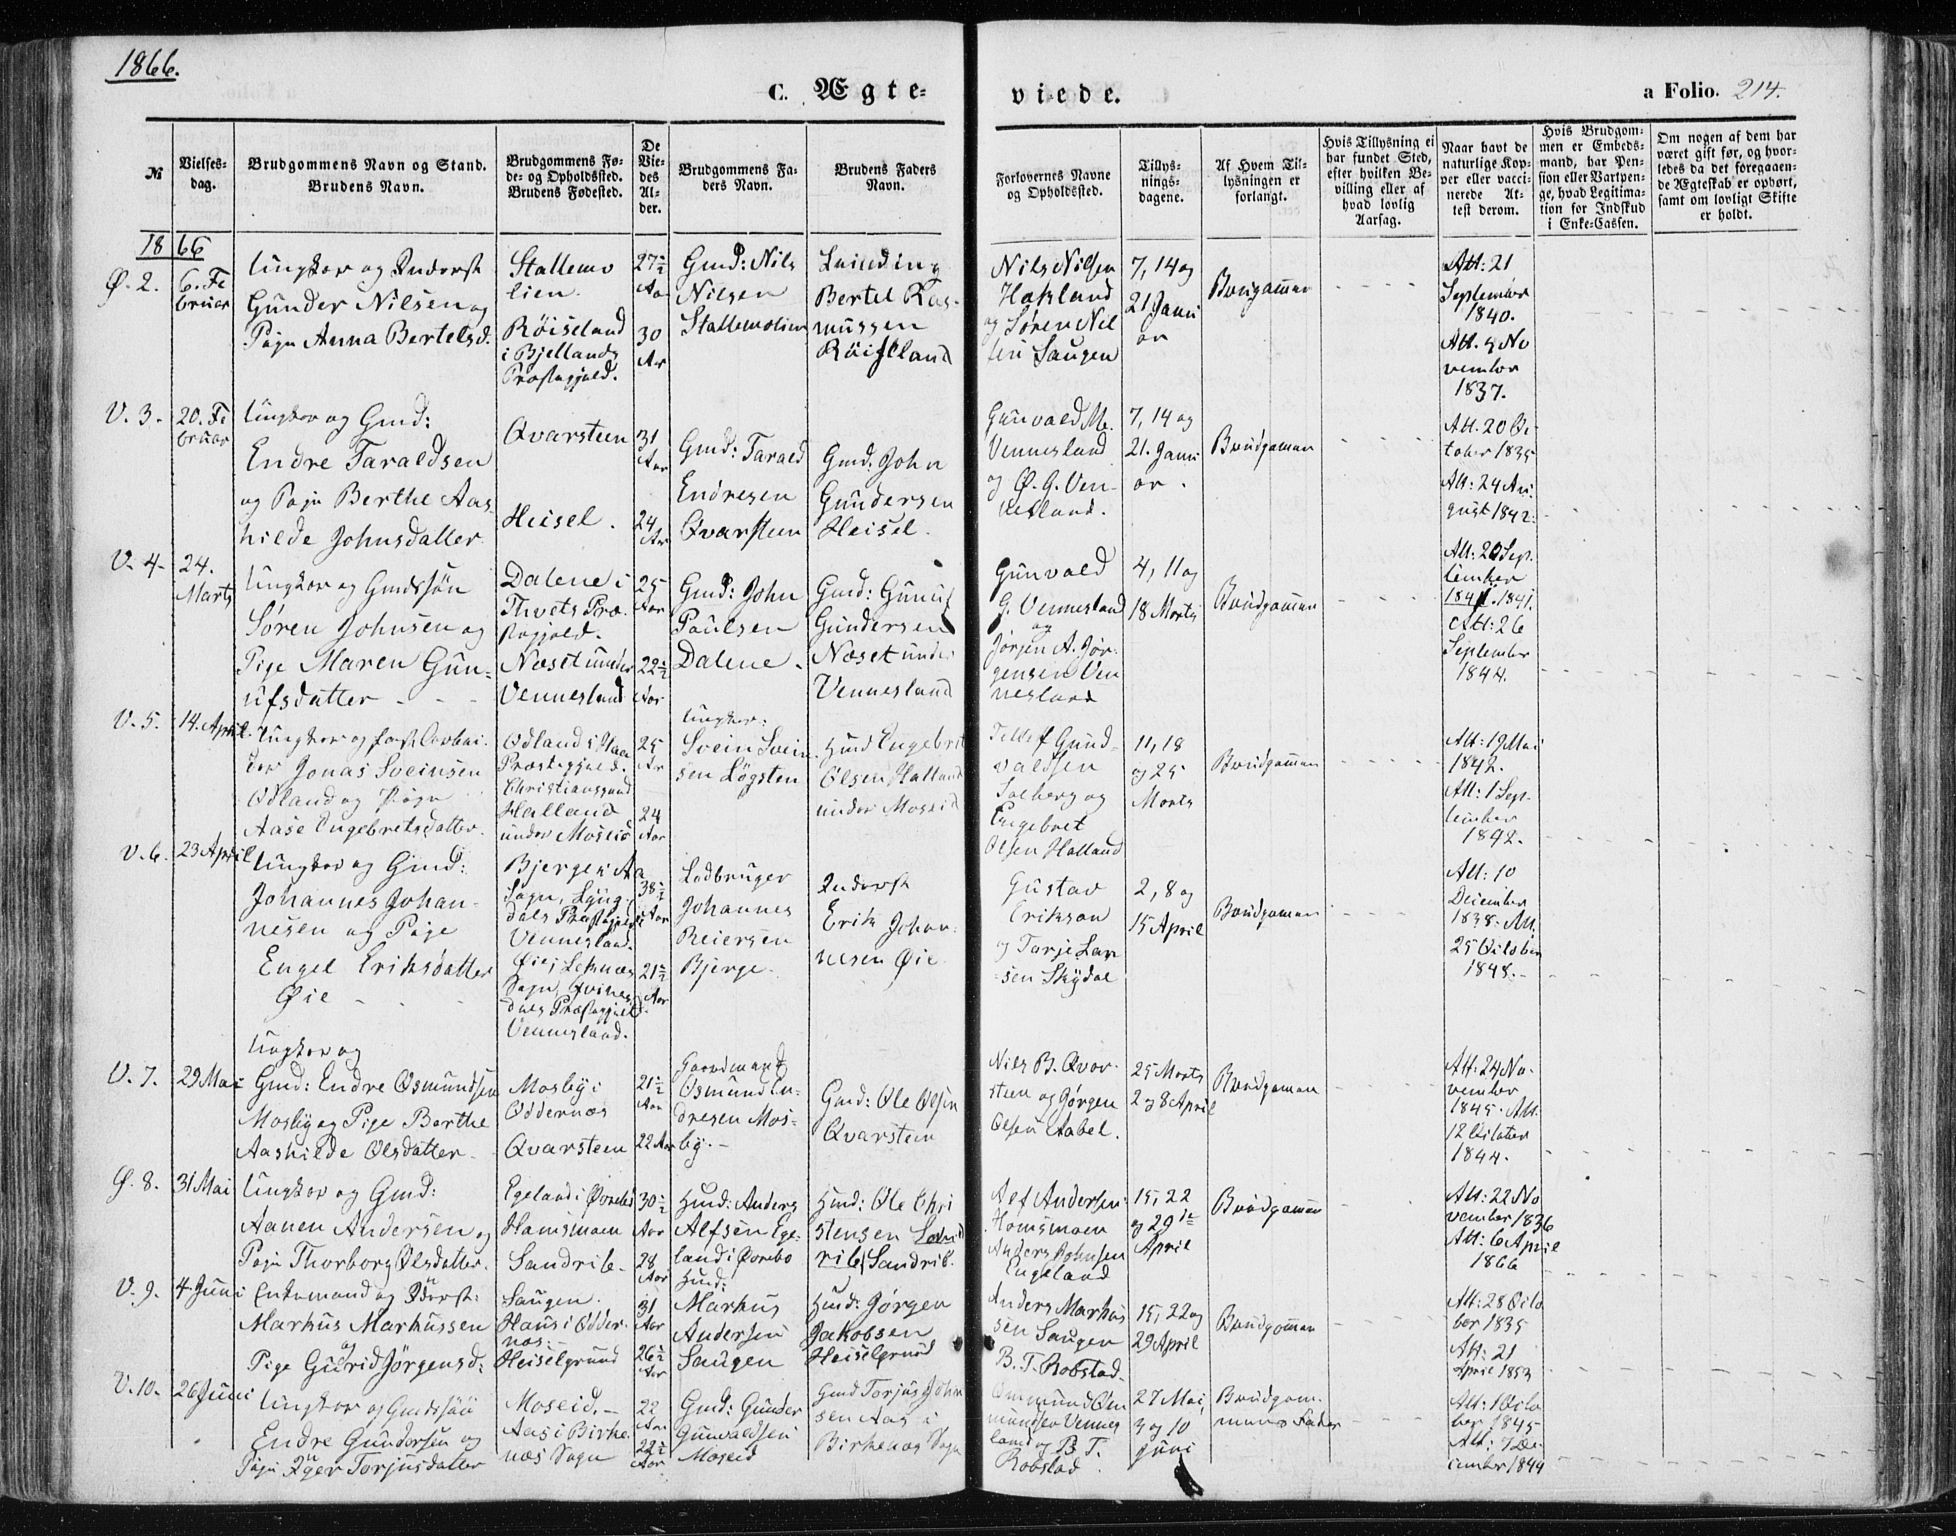 1866.
C. Ægte-
viede.
a Folio. 214.
№
Vielses-
dag.
Brudgommens Navn og Stand.
Brudens Navn.
Brudgommens Fø-
de- og Opholdssted.
Brudens Fødested.
De
Vie-
des
Al-
der.
Brudgommens Fa-
ders Navn.
Brudens Faders
Navn.
Forlovernes Navne
og Opholdssted.
Tillys-
nings-
dagene.
Af Hvem Til-
lysningen er
forlangt.
Hvis Tillysning ei
har fundet Sted,
efter hvilken Be-
villing eller af
hvad lovlig
Aarsag.
Naar havt de
naturlige Kop-
per eller vacci-
nerede At-
test derom.
Hvis Brudgom-
men er Embeds-
mand, har Pen-
sion eller Vartpen-
ge, hvad Legitima-
tion for Indskud
i Enke-Cassen.
Om nogen af dem har
været gift før, og hvor-
ledes da det foregaaen-
de Ægteskab er ophørt,
samt om lovligt Skifte
er holdt.
1866
Ø. 2.
6. Fe
bruar
Ungkar og Inderst
Gunder Nilsen og
Pige Anna Bertelsd.
Stallemo
lien.
Røiseland
i Bjellands
Præstegjeld.
27½
Aar
30
Ar
Gmd: Nils
Nilsen
Stallemolien
Bertel Ras-
mussen
Røiseland
Nils Nilsen
Hækland
og Søren Nil
sen Saugen
7, 14 og
21 Janu
ar
Brudgommen
Att: 21
September
1840.
Att. 4 No
vember
1837.
V. 3.
20. Fe
bruar
Ungkar og Gmd:
Endre Taraldsen
og Pige Berthe Aas
hilde Johnsdatter
Qvarsteen
Heisel.
31
Aar
24
Ar
Gmd: Tarald
Endresen
Qvarsteen
Gmd. John
Gundersen
Heisel.
Gunvald M.
Vennesland
og Ø. G. Ven-
nesland.
7, 14 og
21. Janu
ar.
Brudgommen
Att. 20 Oc
tober 1835
Att: 24 Au
gust 1842
V. 4.
24.
Marts
Ungkar og Gmdssøn
Søren Johnsen og
Pige Maren Gun-
ufsdatter
Dalene i
Thvets Præ-
stegjeld.
Næset under
Vennesland
25
Aar
22½
Aar
Gmd: John
Paulsen
Dalene.
Gmd: Gunuf
Gundersen
Næset under
Vennesland
Gunvald
G. Vennesland
og
Jørgen A. Jør-
gensen Ven
nesland
4, 11 og
18 Marts
Brudgommen
Att: 20 Sep-
tember
1841. 1841.
Att: 26
September
1844.
V. 5.
14. April
Ungkar og fast Arbei-
der Jonas Sveinsen
Odland og Pige
Aase Engebretsdatter.
Odland i Haa
Præstegjeld.
Christianssand
Halland
under Moseid
25
Ar
24
Aar
Ungkar:
Svein Svein
sen Løgsten
Hmd Engebret
Olsen Halland
under Moseid
Tellef Gund-
valdsen
Solberg og
Engebret
Olsen Halland
11, 18
og 25
Marts
Brudgommen
Att: 19 Mai
1842.
Att: 1 Sep-
tember
1842.
V. 6.
23 April
Ungkar og Gmd:
Johannes Johan-
nesen og Pige
Engel Eriksdatter
Øie
Bjerge i Aa
Sogn, Lyng-
dals Præstegjeld
Vennesland.
Øie i Feknæs
Sogn, Qvines
dals Præstegjeld
Vennesland.
38½
Aar
21½
Aar
Ladbruger
Johannes
Reiersen
Bjerge.
Inderst
Erik Johan-
nesen Øie
Gustav
Erikson
og Tarje Lar
sen Skydal
2, 8 og
15 April
Brudgommen
Att: 10
December
1838. Att.
25 October
1848.
V. 7.
29 Mai
Ungkar og
Gmd: Endre Osmundsen
Mosby og Pige Berthe
Aashilde Olsdatter
Mosby i
Oddernæs
Qvarsteen
21½
Aar
22 Aar
Gaardmand
Osmund En-
dresen Mos-
by.
Gmd: Ole Olsen
Qvarsteen
Nils B. Qvar-
steen og Jørgen
Olsen Aabel.
25 Marts
2 og 8 April
Brudgommen
Att: 24 No-
vember
1845. Att:
12 October
1844.
Ø. 8.
31 Mai
Ungkar og Gmd:
Aanen Andersen og
Pige Thorborg Olsdatter.
Egeland i Øvrebø
Hamsmoen
Sandrib
30½
Aar
28
Aar
Hmd: Anders
Alfsen Ege-
land i Øvrebø
Hmd: Ole Chri
stensen
Sandrib.
Alf Andersen
Homsmoen
Anders Johnsen
Engeland
15, 22
og 29de
April
Brudgommen
Att: 22 No
vember 1836
Att: 6 April
1866
V. 9.
4 Juni
Enkemand og Inderst:
Markus Markussen
og
Pige Gurid Jørgensd:
Saugen.
Haus i Odder-
næs.
Heiselgrund
31
Aar
26½
Aar
Hmd:
Markus
Andersen
Saugen
Hmd: Jørgen
Jakobsen
Heiselgrund
Anders Markus
sen Saugen
B. T. Robstad
15, 22 og
29 April
Brudgommen
Att: 28 Octo
ber 1835
Att: 21
April 1853
V. 10.
26 Juni
Ungkar og Gmdssøn
Endre Gundersen og
Pige Inger Torjusdatter
Moseid.
Aas i Birke
næs Sogn
22
Aar
22½
Aar
Gmd: Gunder
Gunvaldsen
Moseid
Gmd Torjus John
sen Aas i
Birkenæs Sogn
Osmund Os
mundsen Vennes
land og B. T.
Robstad
27 Mai,
3 og 10
Juni
Brudgom-
mens Fader
Att: 1 Octo
ber 1845
Att: 7 De-
cember 1844